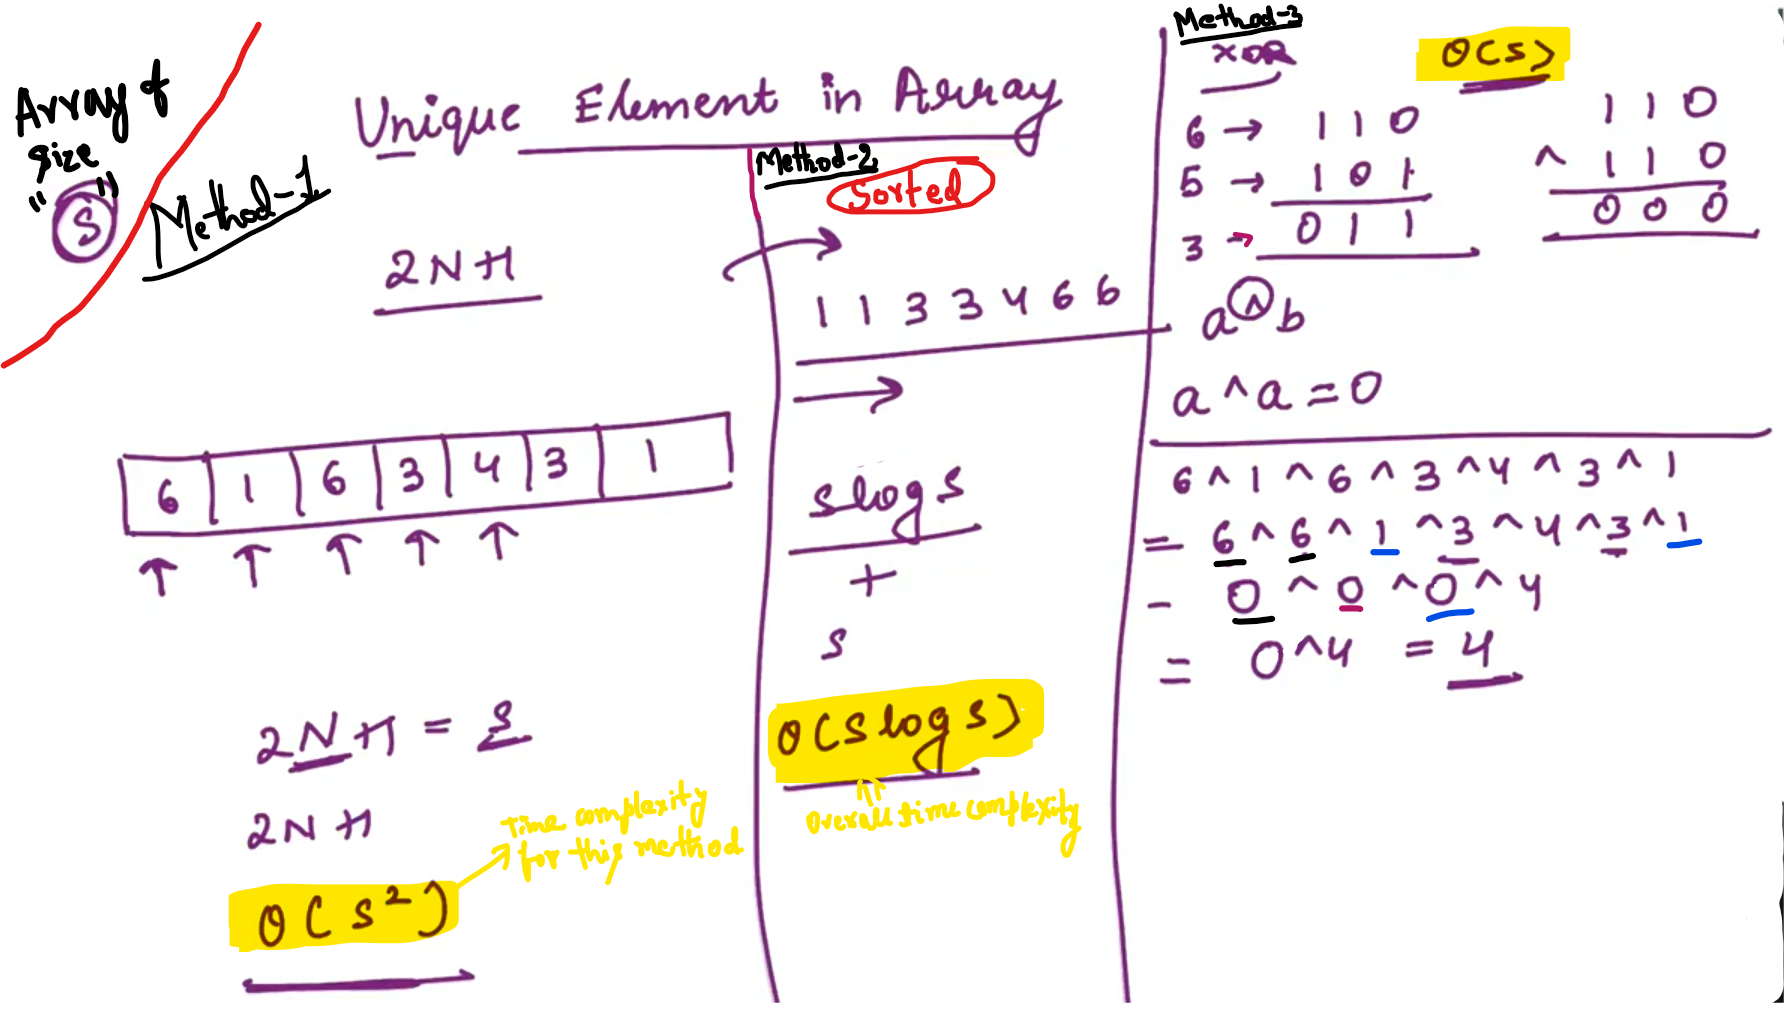 Array of
size
"S"
Method-1
Unique Element in Array
2N+1
6 1 6 3 4 3 1
↑ ↑ ↑ ↑ ↑
2N+1 = S
2N+1
O(S²)
Time complexity
for this method
Method-2
Sorted
1 1 3 3 4 6 6
slogs
+
s
O(slogs)
overall time complexity
Method-3
XOR
O(S)
6 → 1 1 0
5 → 1 0 1
3 → 0 1 1
1 1 0
^ 1 1 0
0 0 0
a^b
a^a=0
6^1^6^3^4^3^1
= 6^6^1^3^4^3^1
- 0^0^0^4
= 0^4 = 4